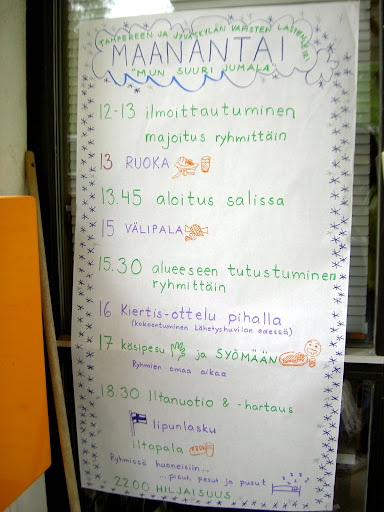 TAMPEREEN JA JYVÄSKYLÄN VAPISTEN LASTENLEIRI
MAANANTAI
"MUN SUURI JUMALA"
12-13 ilmoittautuminen
majoitus ryhmittäin
13 RUOKA
13.45 aloitus salissa
15 VÄLIPALA
15.30 alueeseen tutustuminen
ryhmittäin
16 Kiertis-ottelu pihalla
(kokoontuminen Lähetyshuvilan edessä)
17 käsipesu ja SYÖMÄÄN
Ryhmien omaa aikaa
18.30 Iltanuotio & -hartaus
lipunlasku
iltapala
Ryhmissä huoneisiin...
...pisut, pesut ja pusut
22.00 HILJAISUUS